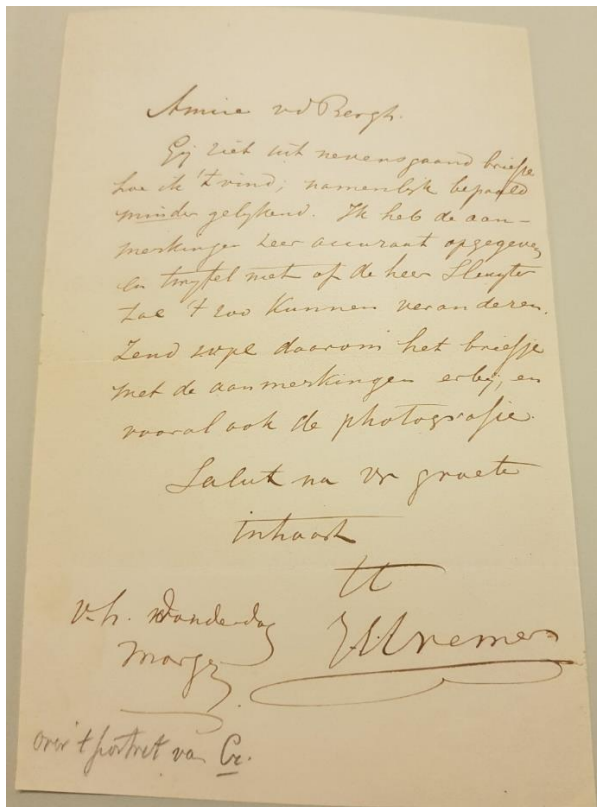 Amice vd Bergh.
Gij ziet uit nevensgaand briefje
hoe ik 't vind; namenlijk bepaald
minder gelijkend. Ik heb de aan-
merkingen zeer accuraat opgegeven
en twyfel niet of de heer Sluyter
zal 't zoo kunnen veranderen.
Zend svpl daarom het briefje
met de aanmerkingen erbij, en
vooral ook de photografie.
Salut na vr groete
in haast
tt
JJCremer
v.h. Donderdag
Morge
over 't portret van Cr.